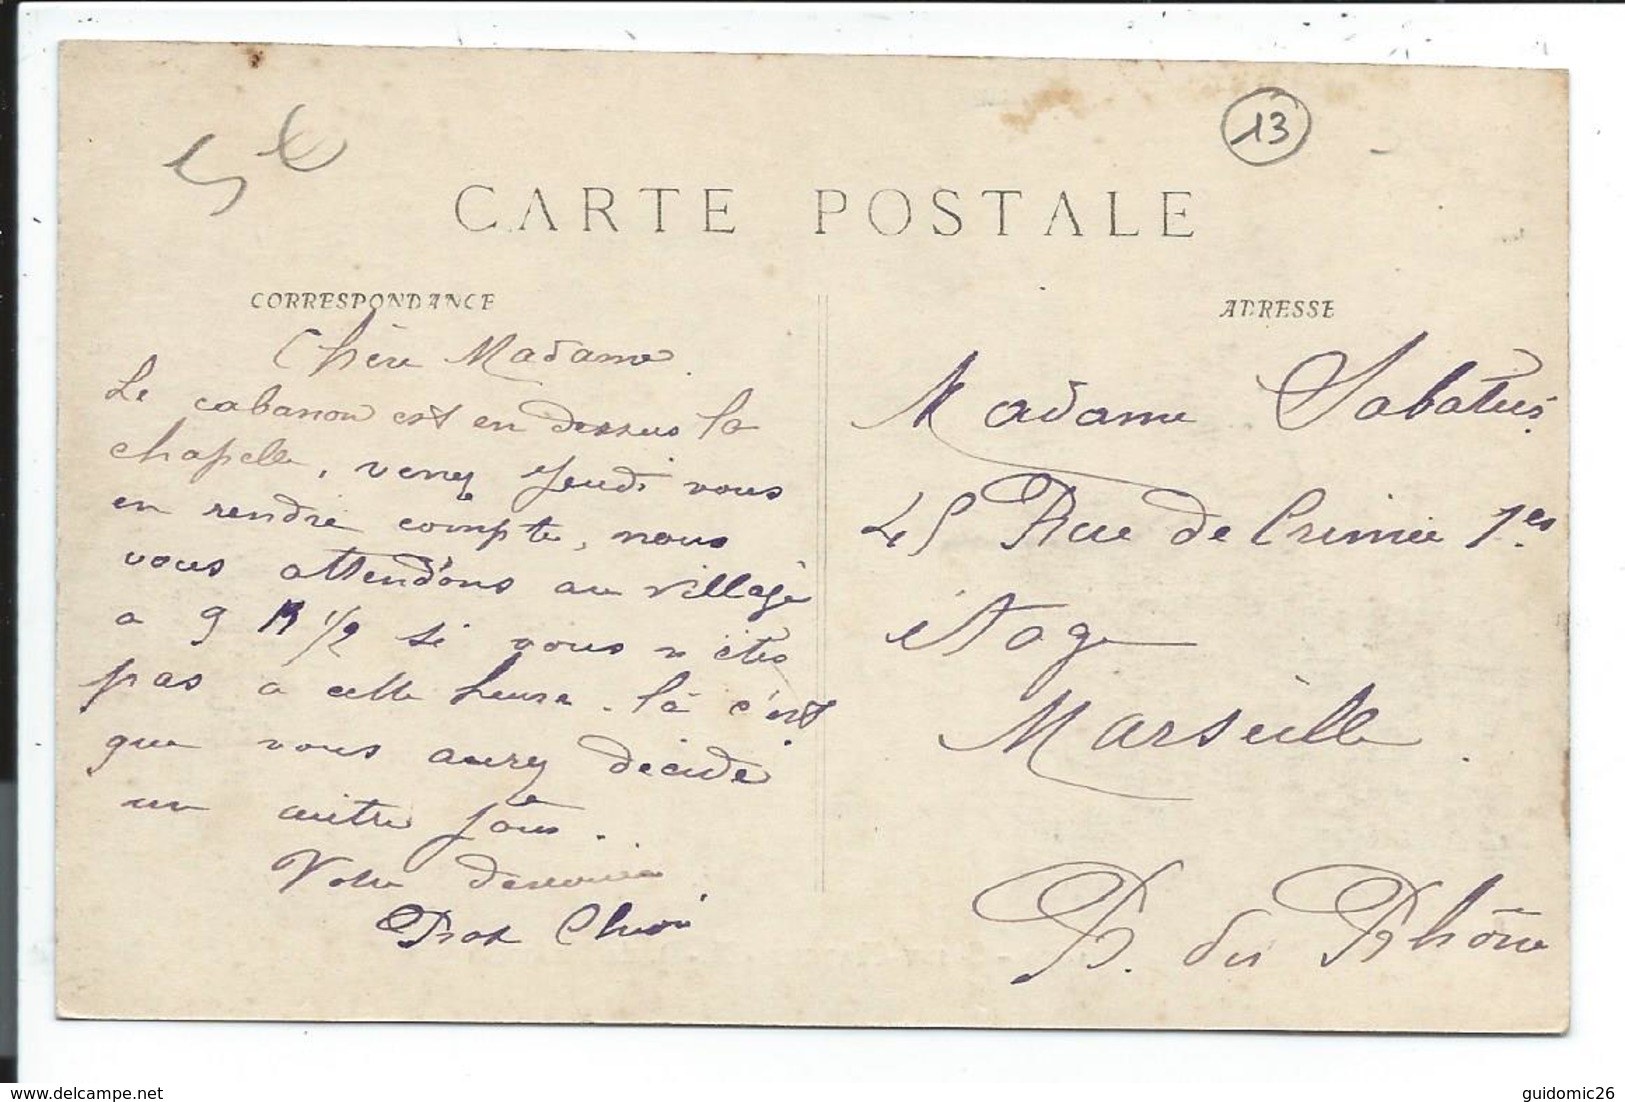 5 €
13
CARTE POSTALE
CORRESPONDANCE
Chère Madame.
Le cabanon est en dessus la
chapelle, venez jeudi vous
en rendre compte, nous
vous attendons au village
a 9 h 1/2 si vous n'êtes
pas a cette heure là c'est
que vous aurez décidé
un autre jour.
Votre
ADRESSE
Madame Sabatier
45 Rue de Crimée 1er
étage
Marseille.
B. du Rhône
delcampe.net
guidomic26